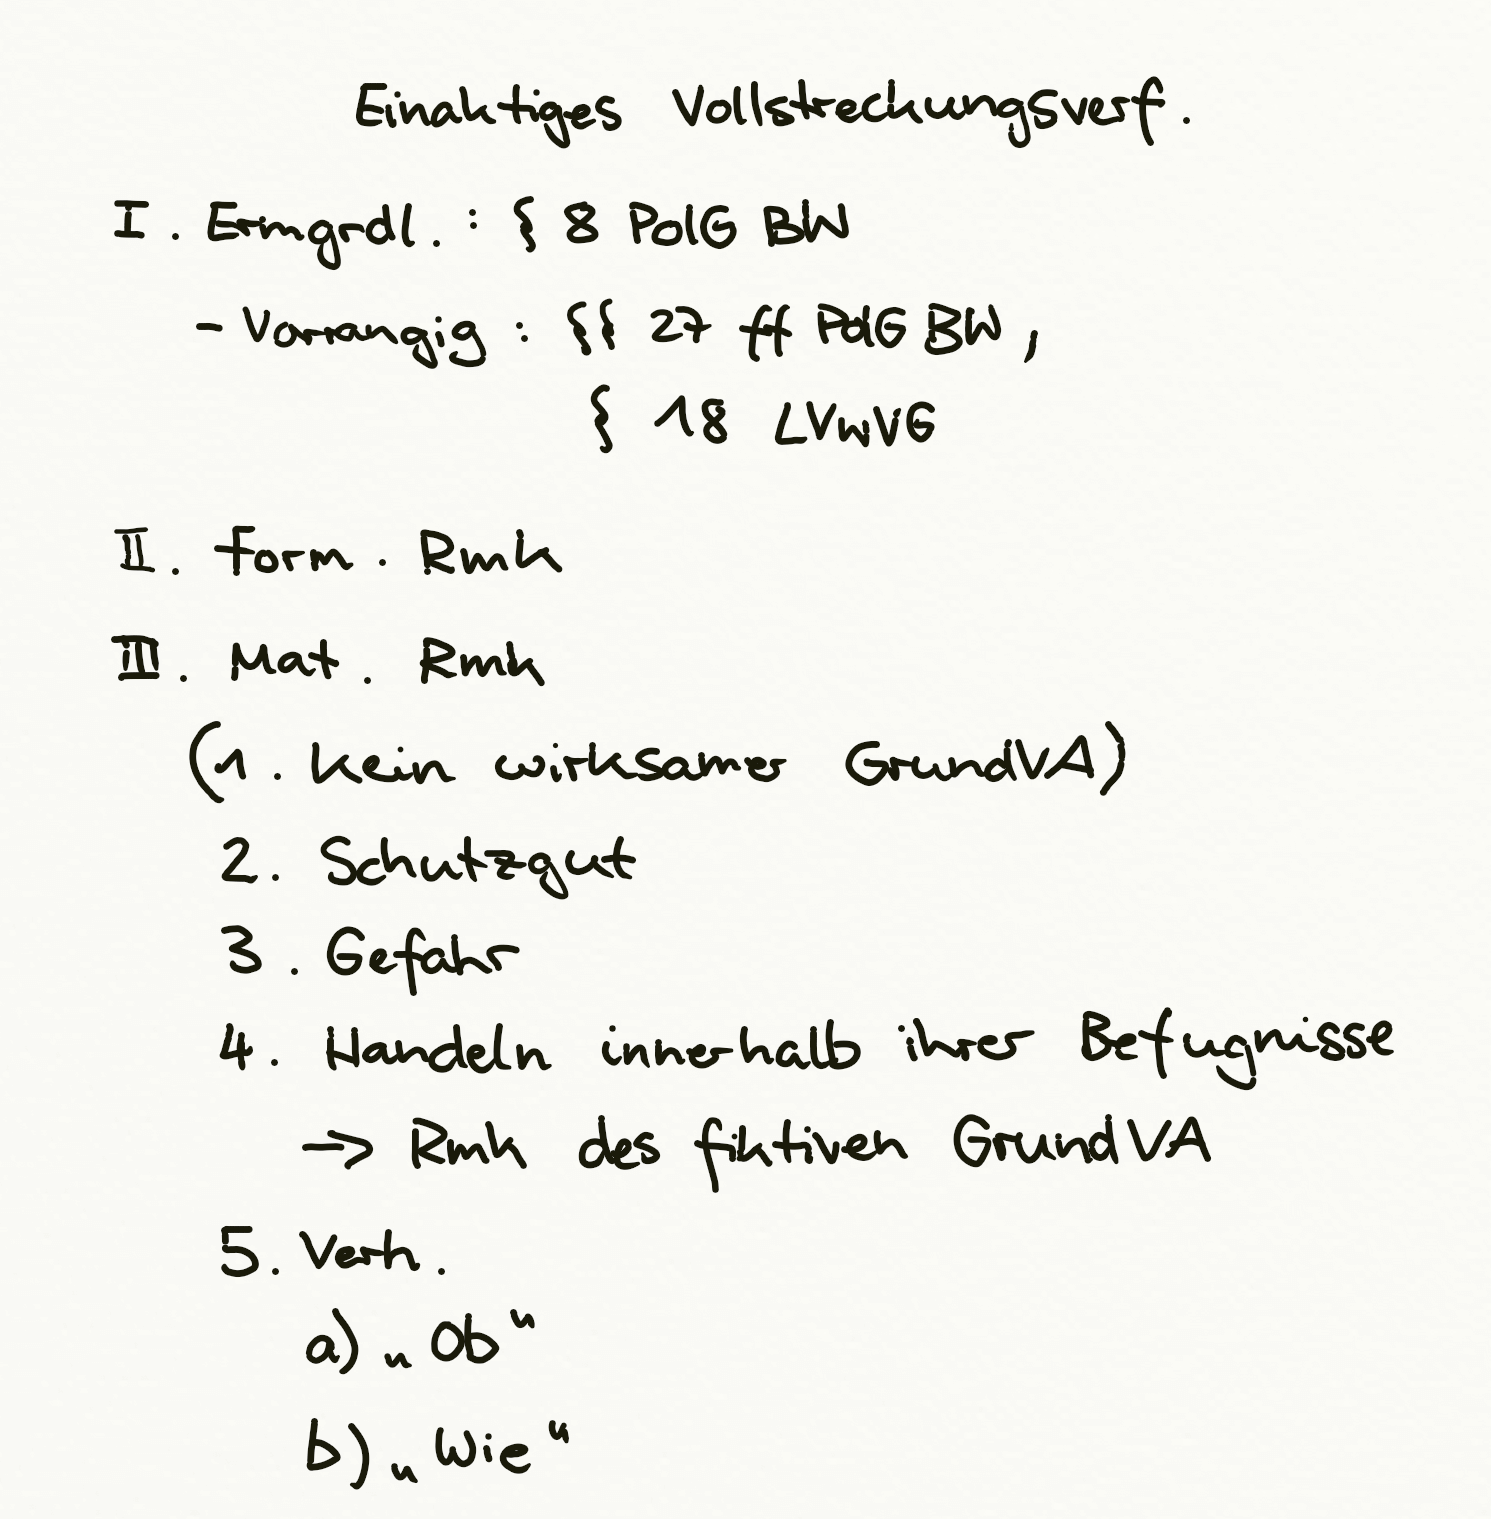 Einaktiges Vollstreckungsverf.
I. Ermgrdl.: § 8 PolG BW
- Vorrangig: §§ 27 ff PolG BW,
§ 18 LVwVG
II. Form. Rmk
III. Mat. Rmk
(1. kein wirksamer GrundVA)
2. Schutzgut
3. Gefahr
4. Handeln innerhalb ihrer Befugnisse
→ Rmk des fiktiven GrundVA
5. Verh.
a) „Ob“
b) „Wie“